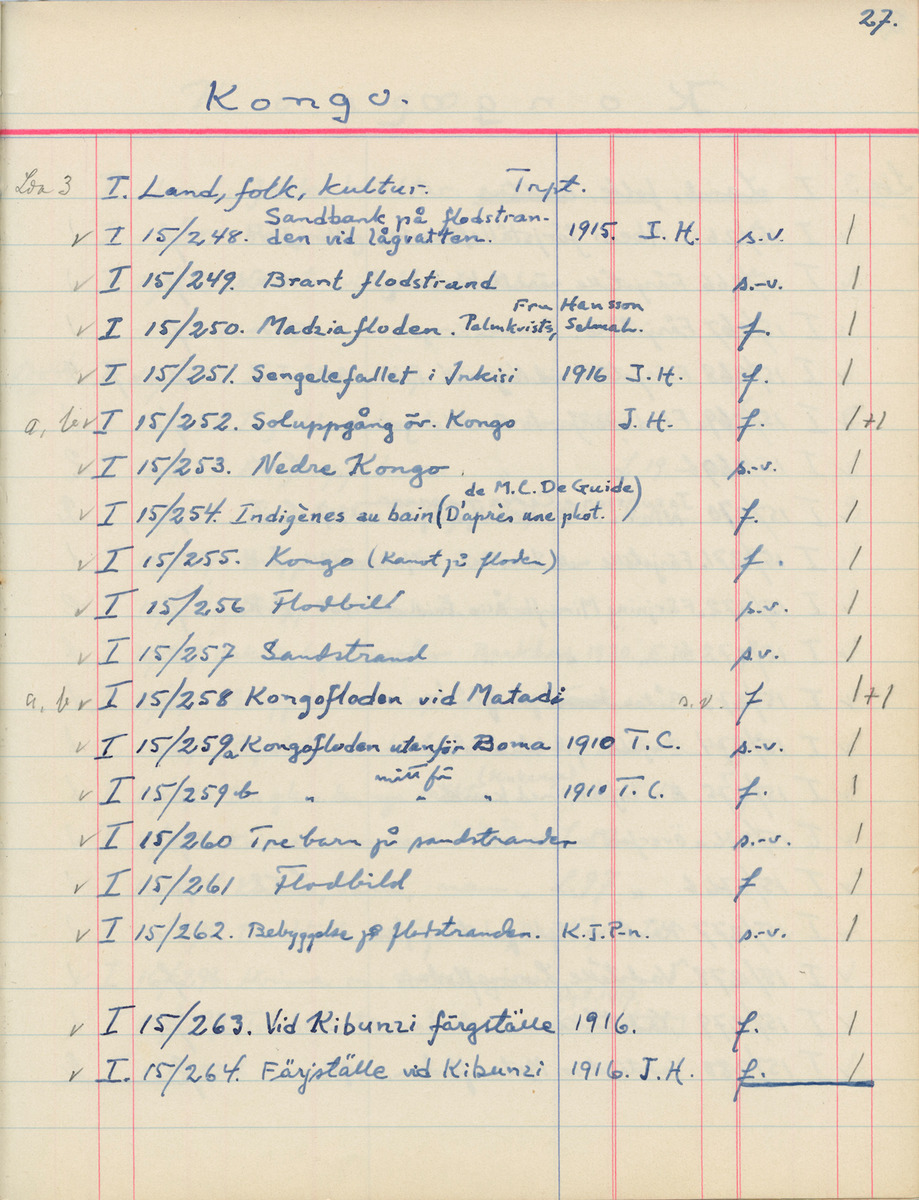 27.
Kongo.
Lda 3 I. Land, folk, kultur. Trpt.
Sandbank på flodstran-
v I 15/248. den vid lågvatten. 1915. I. H. s.v. /
v I 15/249. Brant flodstrand s.-v. /
Fru Hansson
v I 15/250. Madziafloden. Palmkvists, Selmah. f. /
v I 15/251. Sengelefallet i Inkisi 1916 J. H. f. /
a, b v I 15/252. Soluppgång öv. Kongo J. H. f. /+/
v I 15/253. Nedre Kongo. s.-v. /
de M.C. De Guide)
v I 15/254. Indigènes au bain (D'après une phot. f. /
v I 15/255. Kongo (Kanot på floden) f. /
v I 15/256 Flodbild s.v. /
v I 15/257 Sandstrand s.v. /
a, b v I 15/258 Kongofloden vid Matadi s.v. f /+/
v I 15/259a Kongofloden utanför Boma 1910 T. C. s.-v. /
mitt för
v I 15/259 b " " " 1910 T. C. f. /
v I 15/260 Tre barn på sandstranden s.-v. /
v I 15/261 Flodbild f /
v I 15/262. Bebyggelse på flodstranden. K.J.P-n. s.-v. /
v I 15/263. Vid Kibunzi färgställe 1916. f. /
v I. 15/264. Färjställe vid Kibunzi 1916. J. H. f. /